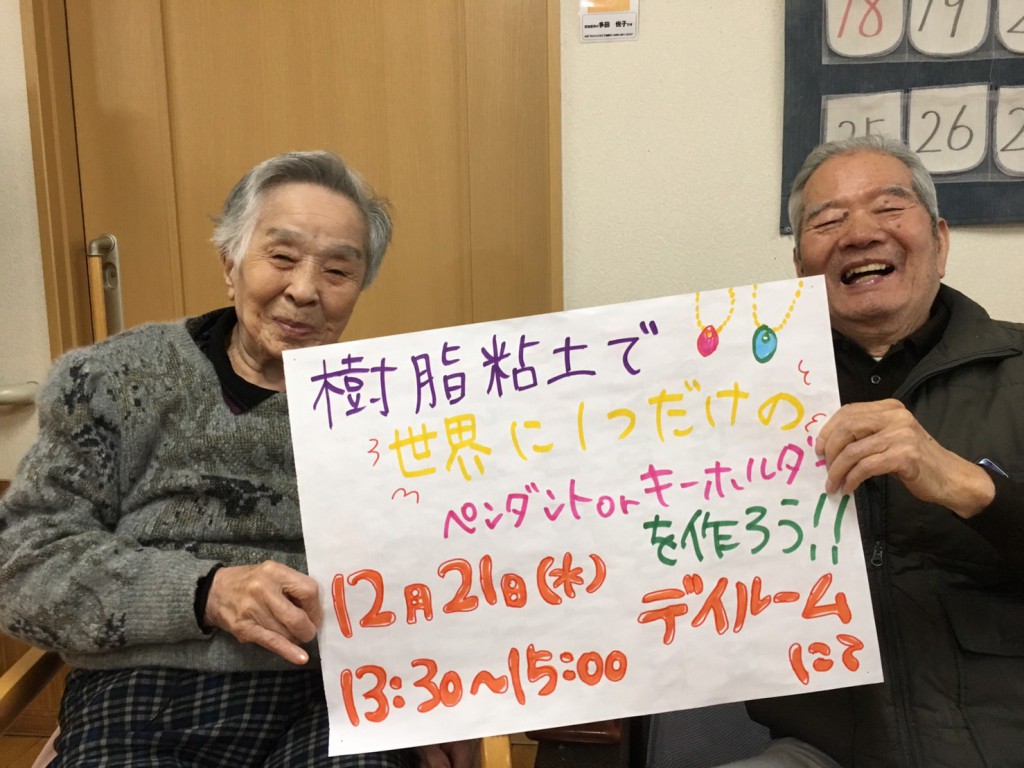 多田 悦子
18 19
25 26
樹脂粘土で
世界に1つだけの
ペンダントorキーホルダー
を作ろう!!
12月21日(水)
デイルーム
にて
13:30~15:00